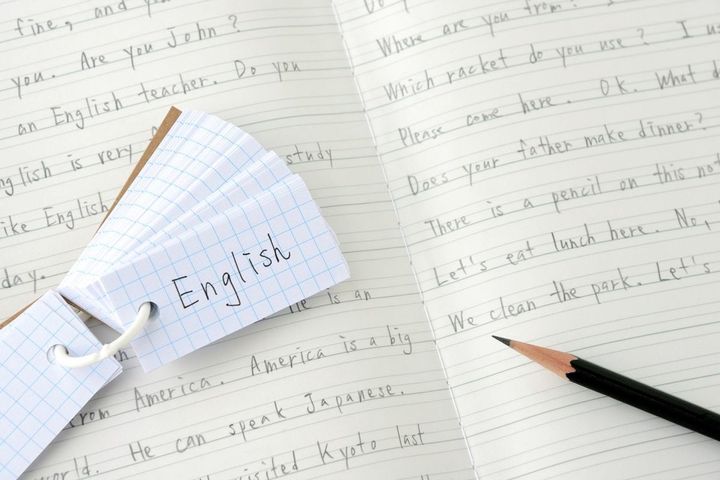 fine, and
you. Are you John?
an English teacher. Do you
English is very
study
like English
day.
English
He is an
from America. America is a big
world. He can speak Japanese.
visited Kyoto last
Do
Where are you from?
Which racket do you use? I
Please come here. OK. What
Does your father make dinner?
There is a pencil on this
Let's eat lunch here. No,
We clean the park. Let's